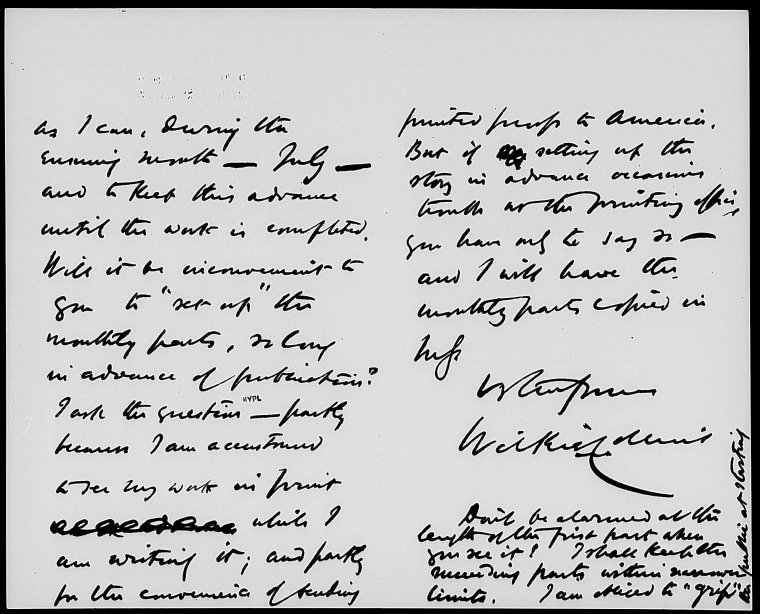 as I can, during the
ensuing month — July —
and to keep this advance
until the work is completed.
Will it be inconvenient to
you to "set up" the
monthly parts, so long
in advance of publication?
I ask the question — partly
NYPL
because I am accustomed
to see my work in print
while I
am writing it; and partly
for the convenience of sending
printed proofs to America.
But if setting up the
story in advance occasions
trouble at the printing office,
you have only to say so —
and I will have the
monthly parts copied in
Ms
Wilkie Collins
Don't be alarmed at the
length of the first part when
you see it! I shall keep the
succeeding parts within narrower
limits. I am obliged to "grip"
the public at starting